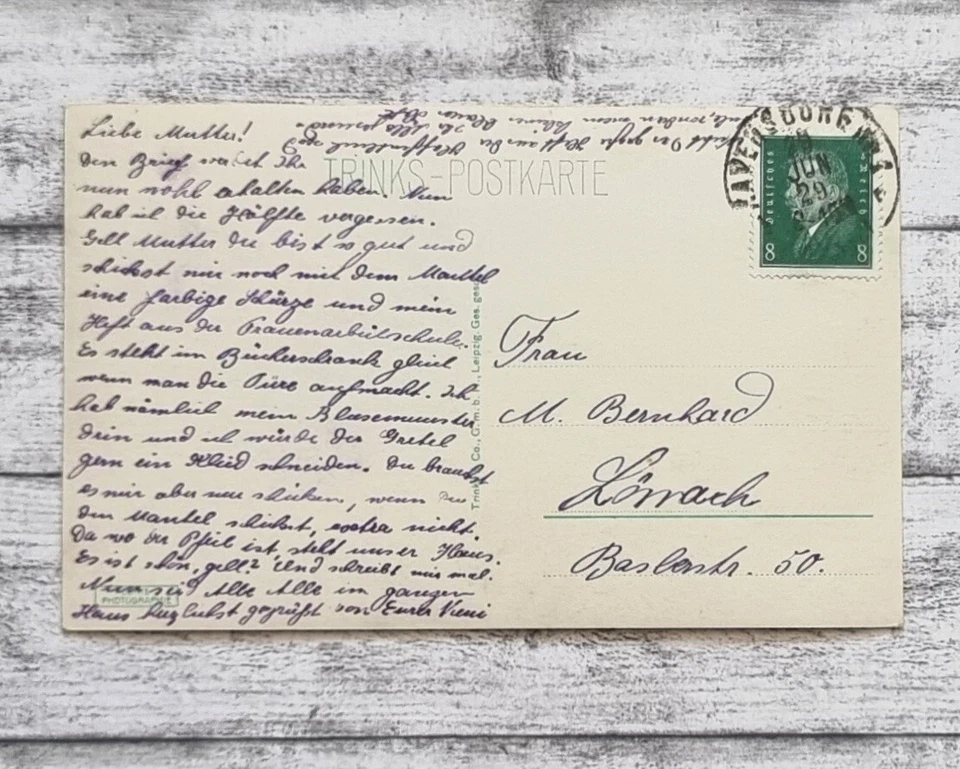 Liebe Mutter!
Den Brief werdet Ihr
nun wohl erhalten haben. Nun
hab ich die Hälfte vergessen.
Gell Mutter du bist so gut und
schickst mir noch mit dem Mantel
eine farbige Schürze und mein
Heft aus der Frauenarbeitsschule.
Es steht im Bücherschrank gleich
wenn man die Türe aufmacht. Ich
hab nämlich mein Blusenmuster
drin und ich würde der Gretel
gern ein Kleid schneiden. Du brauchst
es mir aber nur schicken, wenn Du
den Mantel schickst, extra nicht.
Da wo der Pfeil ist, steht unser Haus.
Es ist schön, gell? Und schreibt mir mal.
Nun seid Alle Alle im ganzen
Haus herzlichst gegrüßt von Eurer
Nicht das große Heft aus der
sondern mein kleines blaues Heft
TRINKS-POSTKARTE
Trinks & Co., G.m.b.H., Leipzig. Ges. gesch.
PHOTOGRAPHIE
JUN
29
Deutsches Reich
8 8
Frau
M. Bernhard
Lörrach
Baslerstr. 50.